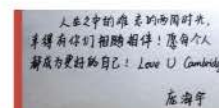 人生之中的难忘的两周时光，
幸得有你们相随相伴！愿每个人
都成为更好的自己！Love U Cambridge